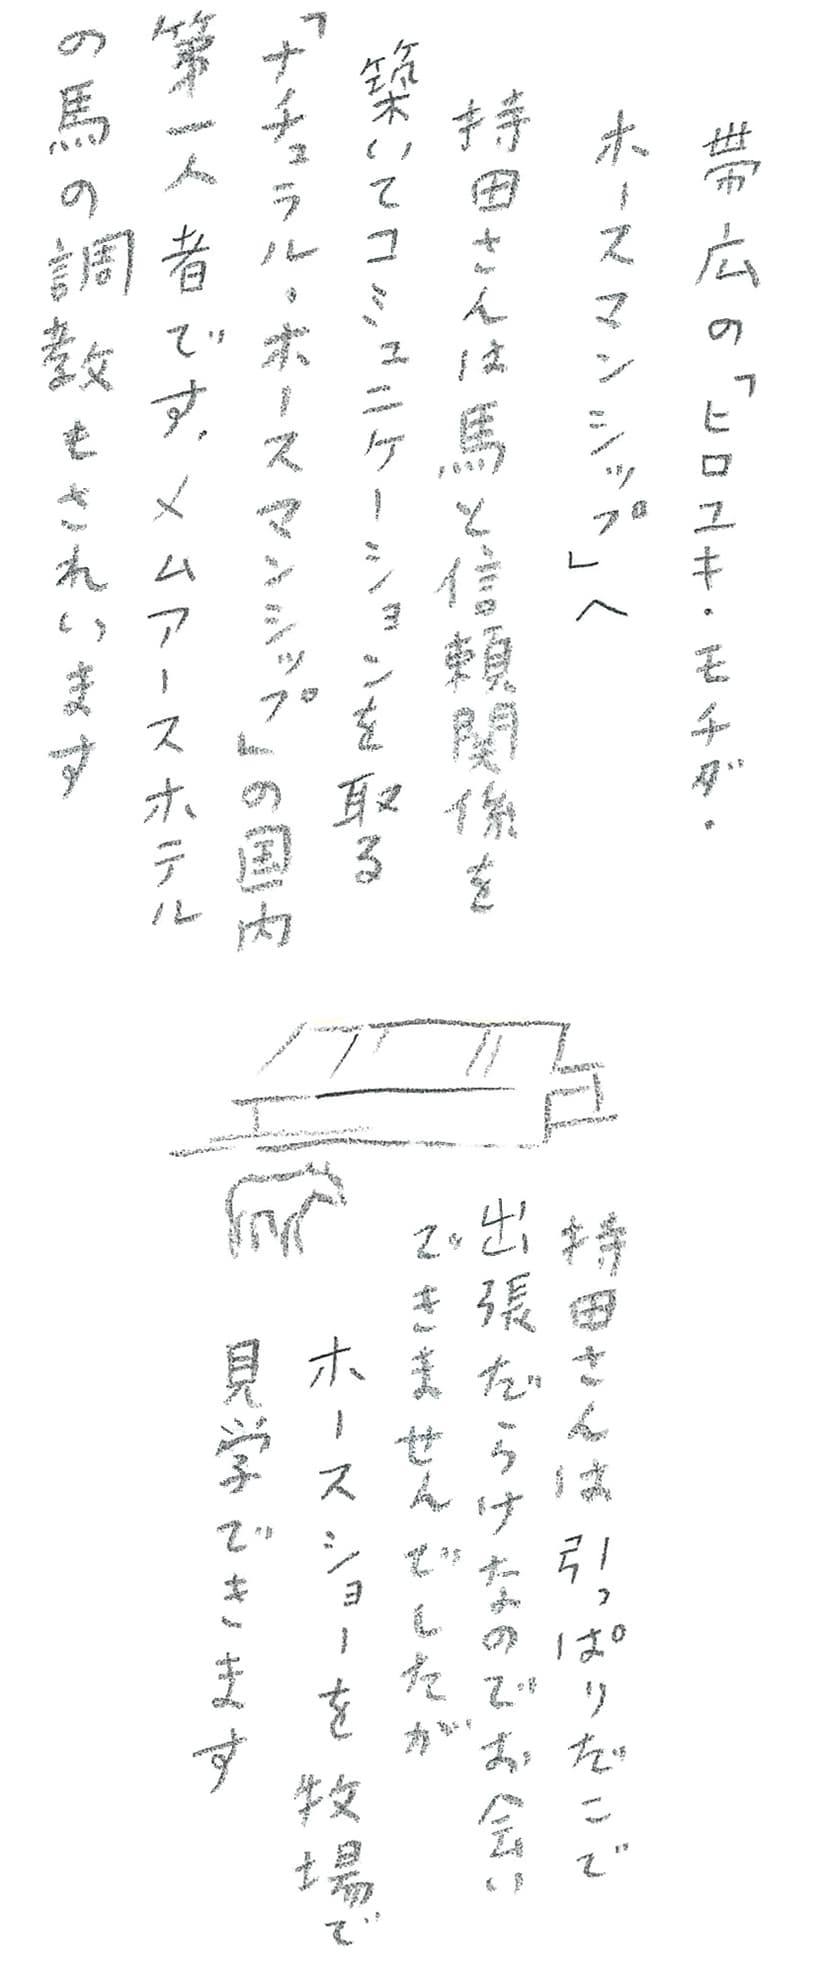 帯広の「ヒロユキ・モチダ・
ホースマンシップ」へ
持田さんは馬と信頼関係を
築いてコミュニケーションを取る
「ナチュラル・ホースマンシップ」の国内
第一人者です.メムアースホテル
の馬の調教もされいます
持田さんは引っぱりだこで
出張だらけなのでお会い
できませんでしたが
ホースショーを牧場で
見学できます